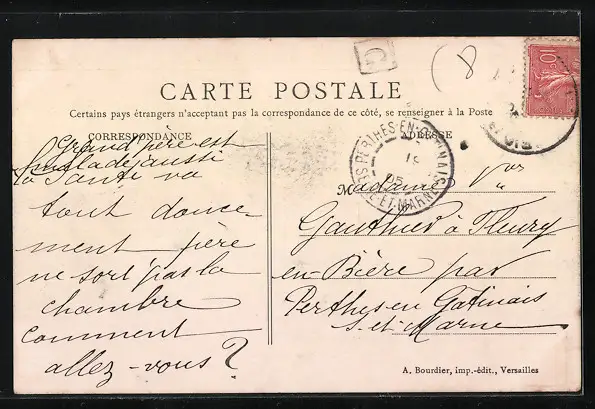 CARTE POSTALE
Certains pays étrangers n'acceptant pas la correspondance de ce côté, se renseigner à la Poste
CORRESPONDANCE
ADRESSE
Grand père est
malade aussi
la santé va
tout douce-
ment père
ne sort pas la
chambre
comment
allez-vous?
Madame Vve
Gauthier à Fleury
en-Bière par
Perthes en Gatinais
S-et-Marne
PERTHES-EN-GATINAIS
ET-MARNE
10c
8
A. Bourdier, imp.-édit., Versailles